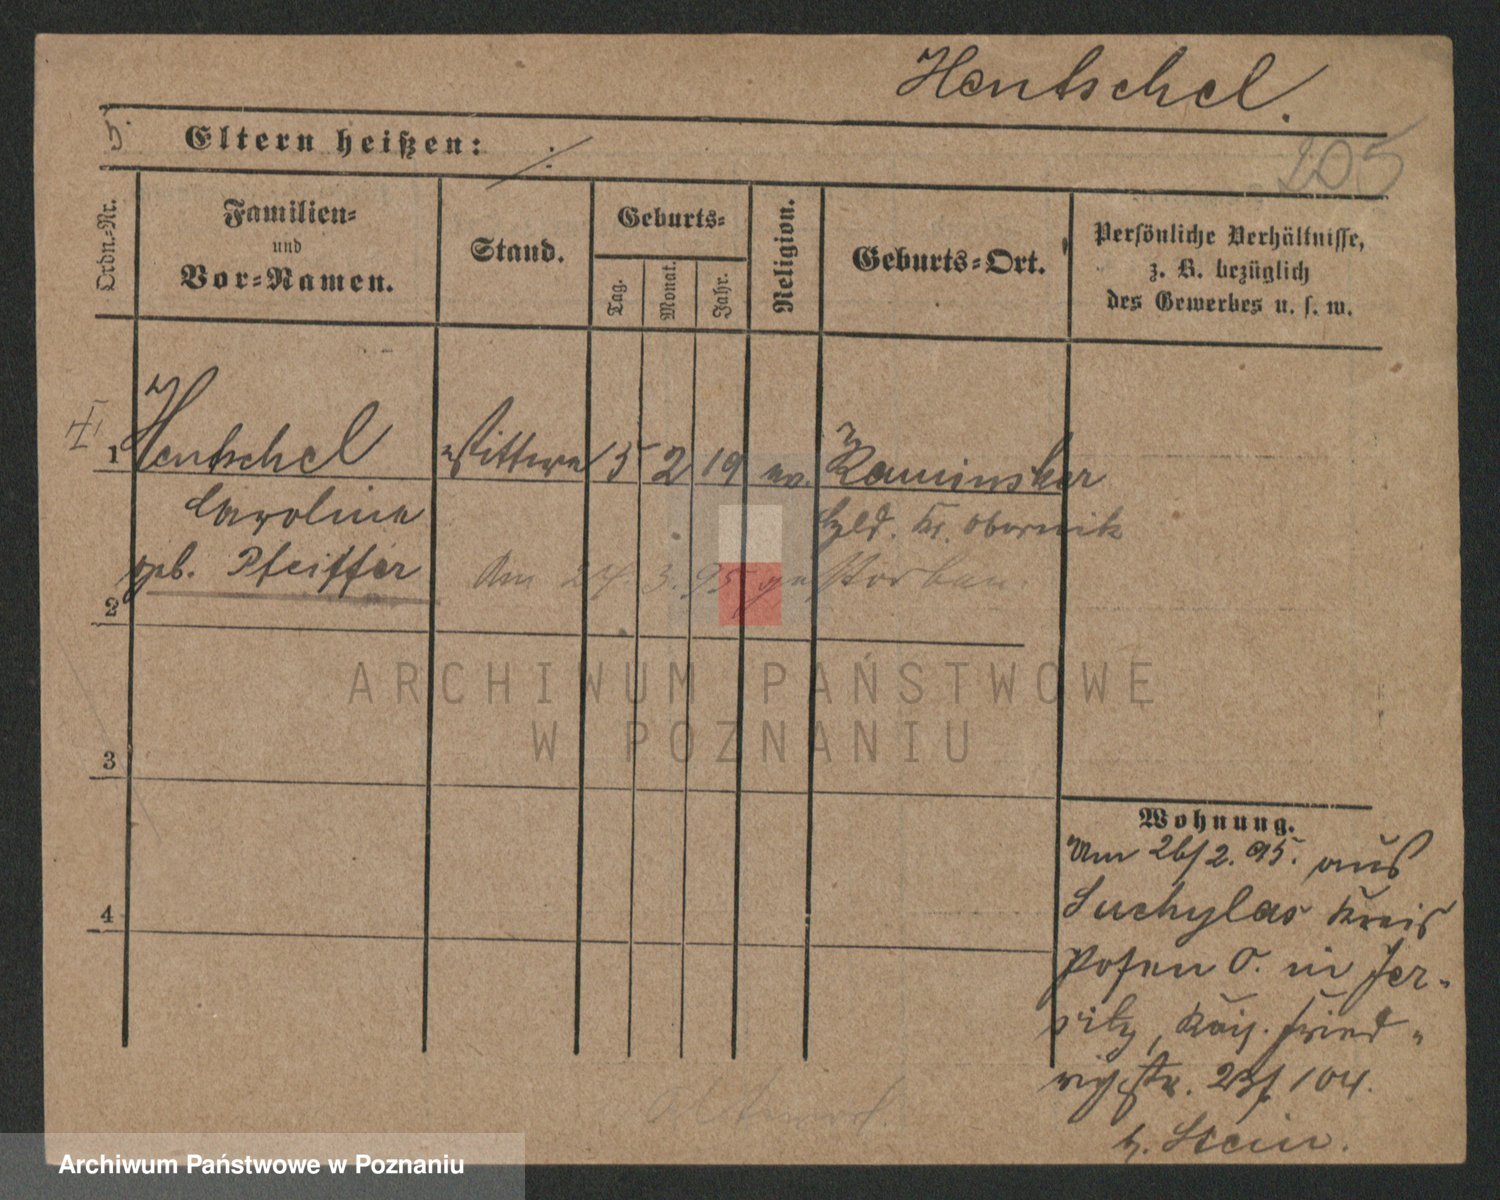 Hentschel.
Eltern heißen:
205
Ordn.=Nr.
Familien=
und
Vor=Namen.
Stand.
Geburts=
Tag.
Monat.
Jahr.
Religion.
Geburts=Ort.
Persönliche Verhältnisse,
z. B. bezüglich
des Gewerbes u. s. w.
1 Hentschel Wittwe 5 2 19 ev. Kaminsker
Caroline Hld. Kr. Obornik
geb. Pfeiffer Am 24. 3. 95 gestorben.
2
3
4
ARCHIWUM PAŃSTWOWE
W POZNANIU
Wohnung.
Am 26/2. 95. aus
Suchylas Kreis
Posen O. in Jer-
sitz, Kais. Fried-
richstr. 23/104.
b. Stein.
Archiwum Państwowe w Poznaniu